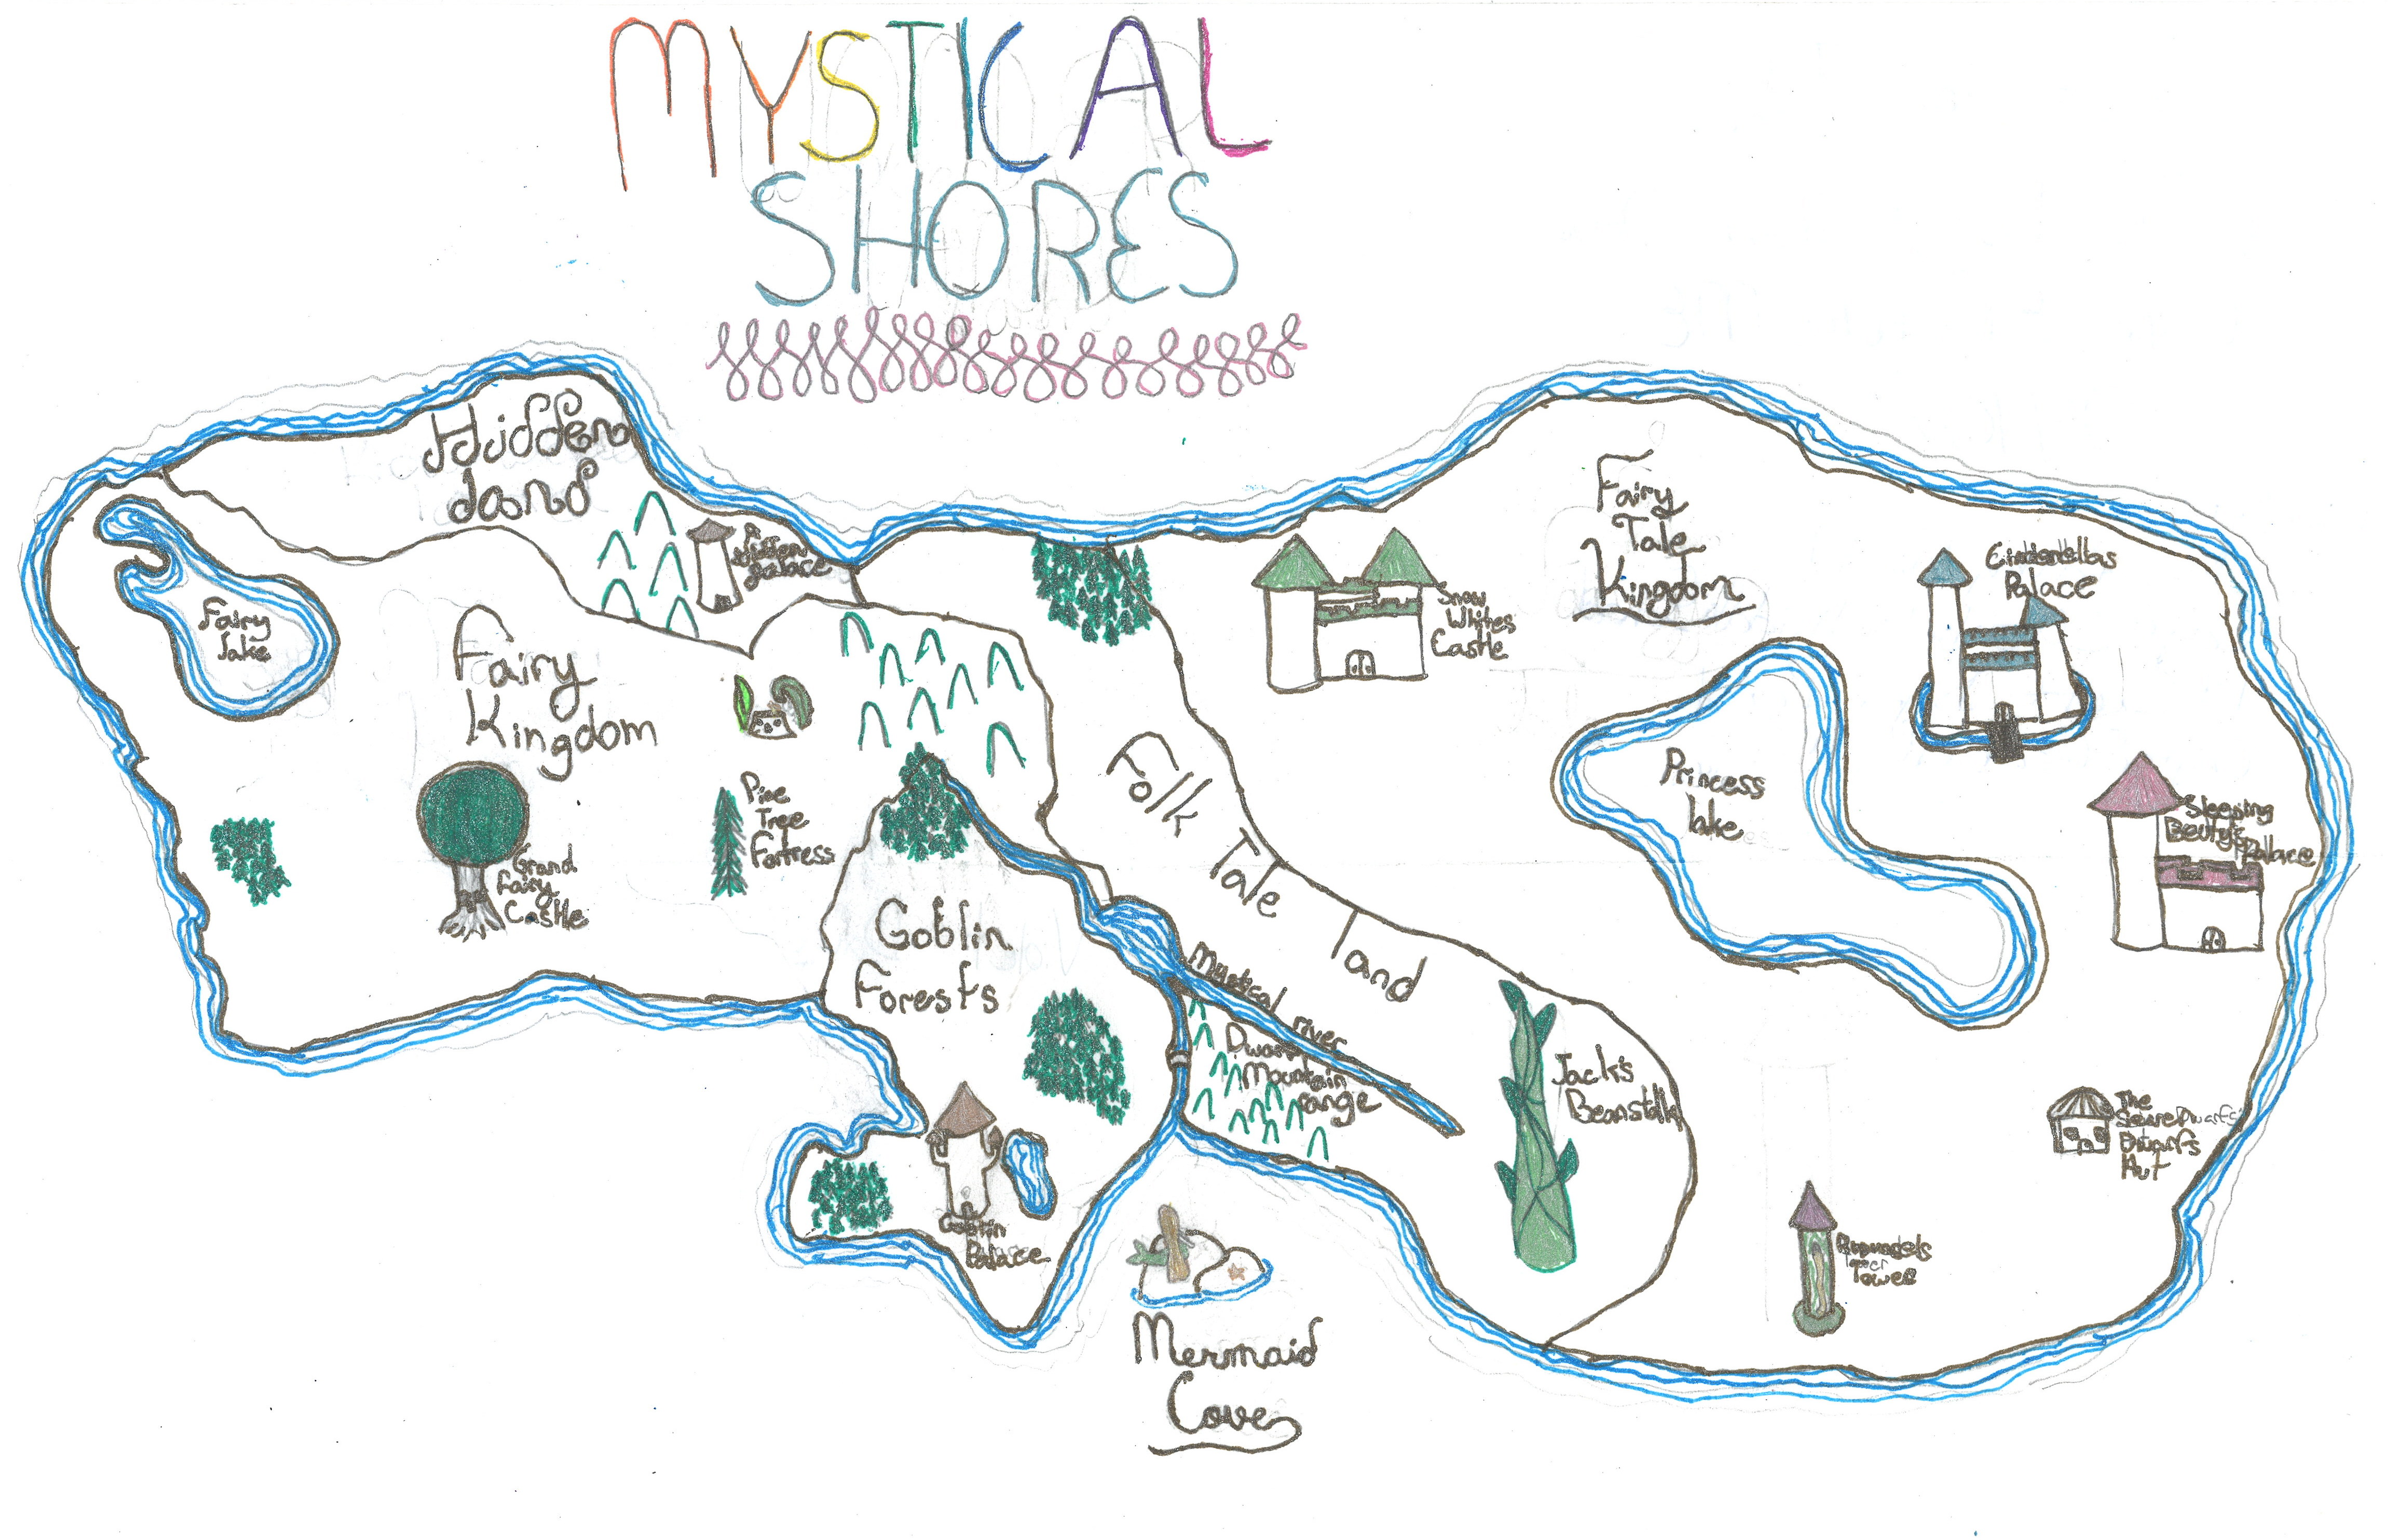 MYSTICAL
SHORES
Hidden
land
A
Hidden
Palace
Fairy
lake
Fairy
Kingdom
Grand
Fairy
Castle
Pine
Tree
Fortress
Goblin
Forests
Goblin
Palace
Folk Tale land
Mystical river
Dwarf
Mountain
range
Jack's
Beanstalk
Mermaid
Cove
Fairy
Tale
Kingdom
Snow
Whites
Castle
Cinderellas
Palace
Princess
lake
Sleeping
Beuty's
Palace
The
Dwarfs
Hut
Tower